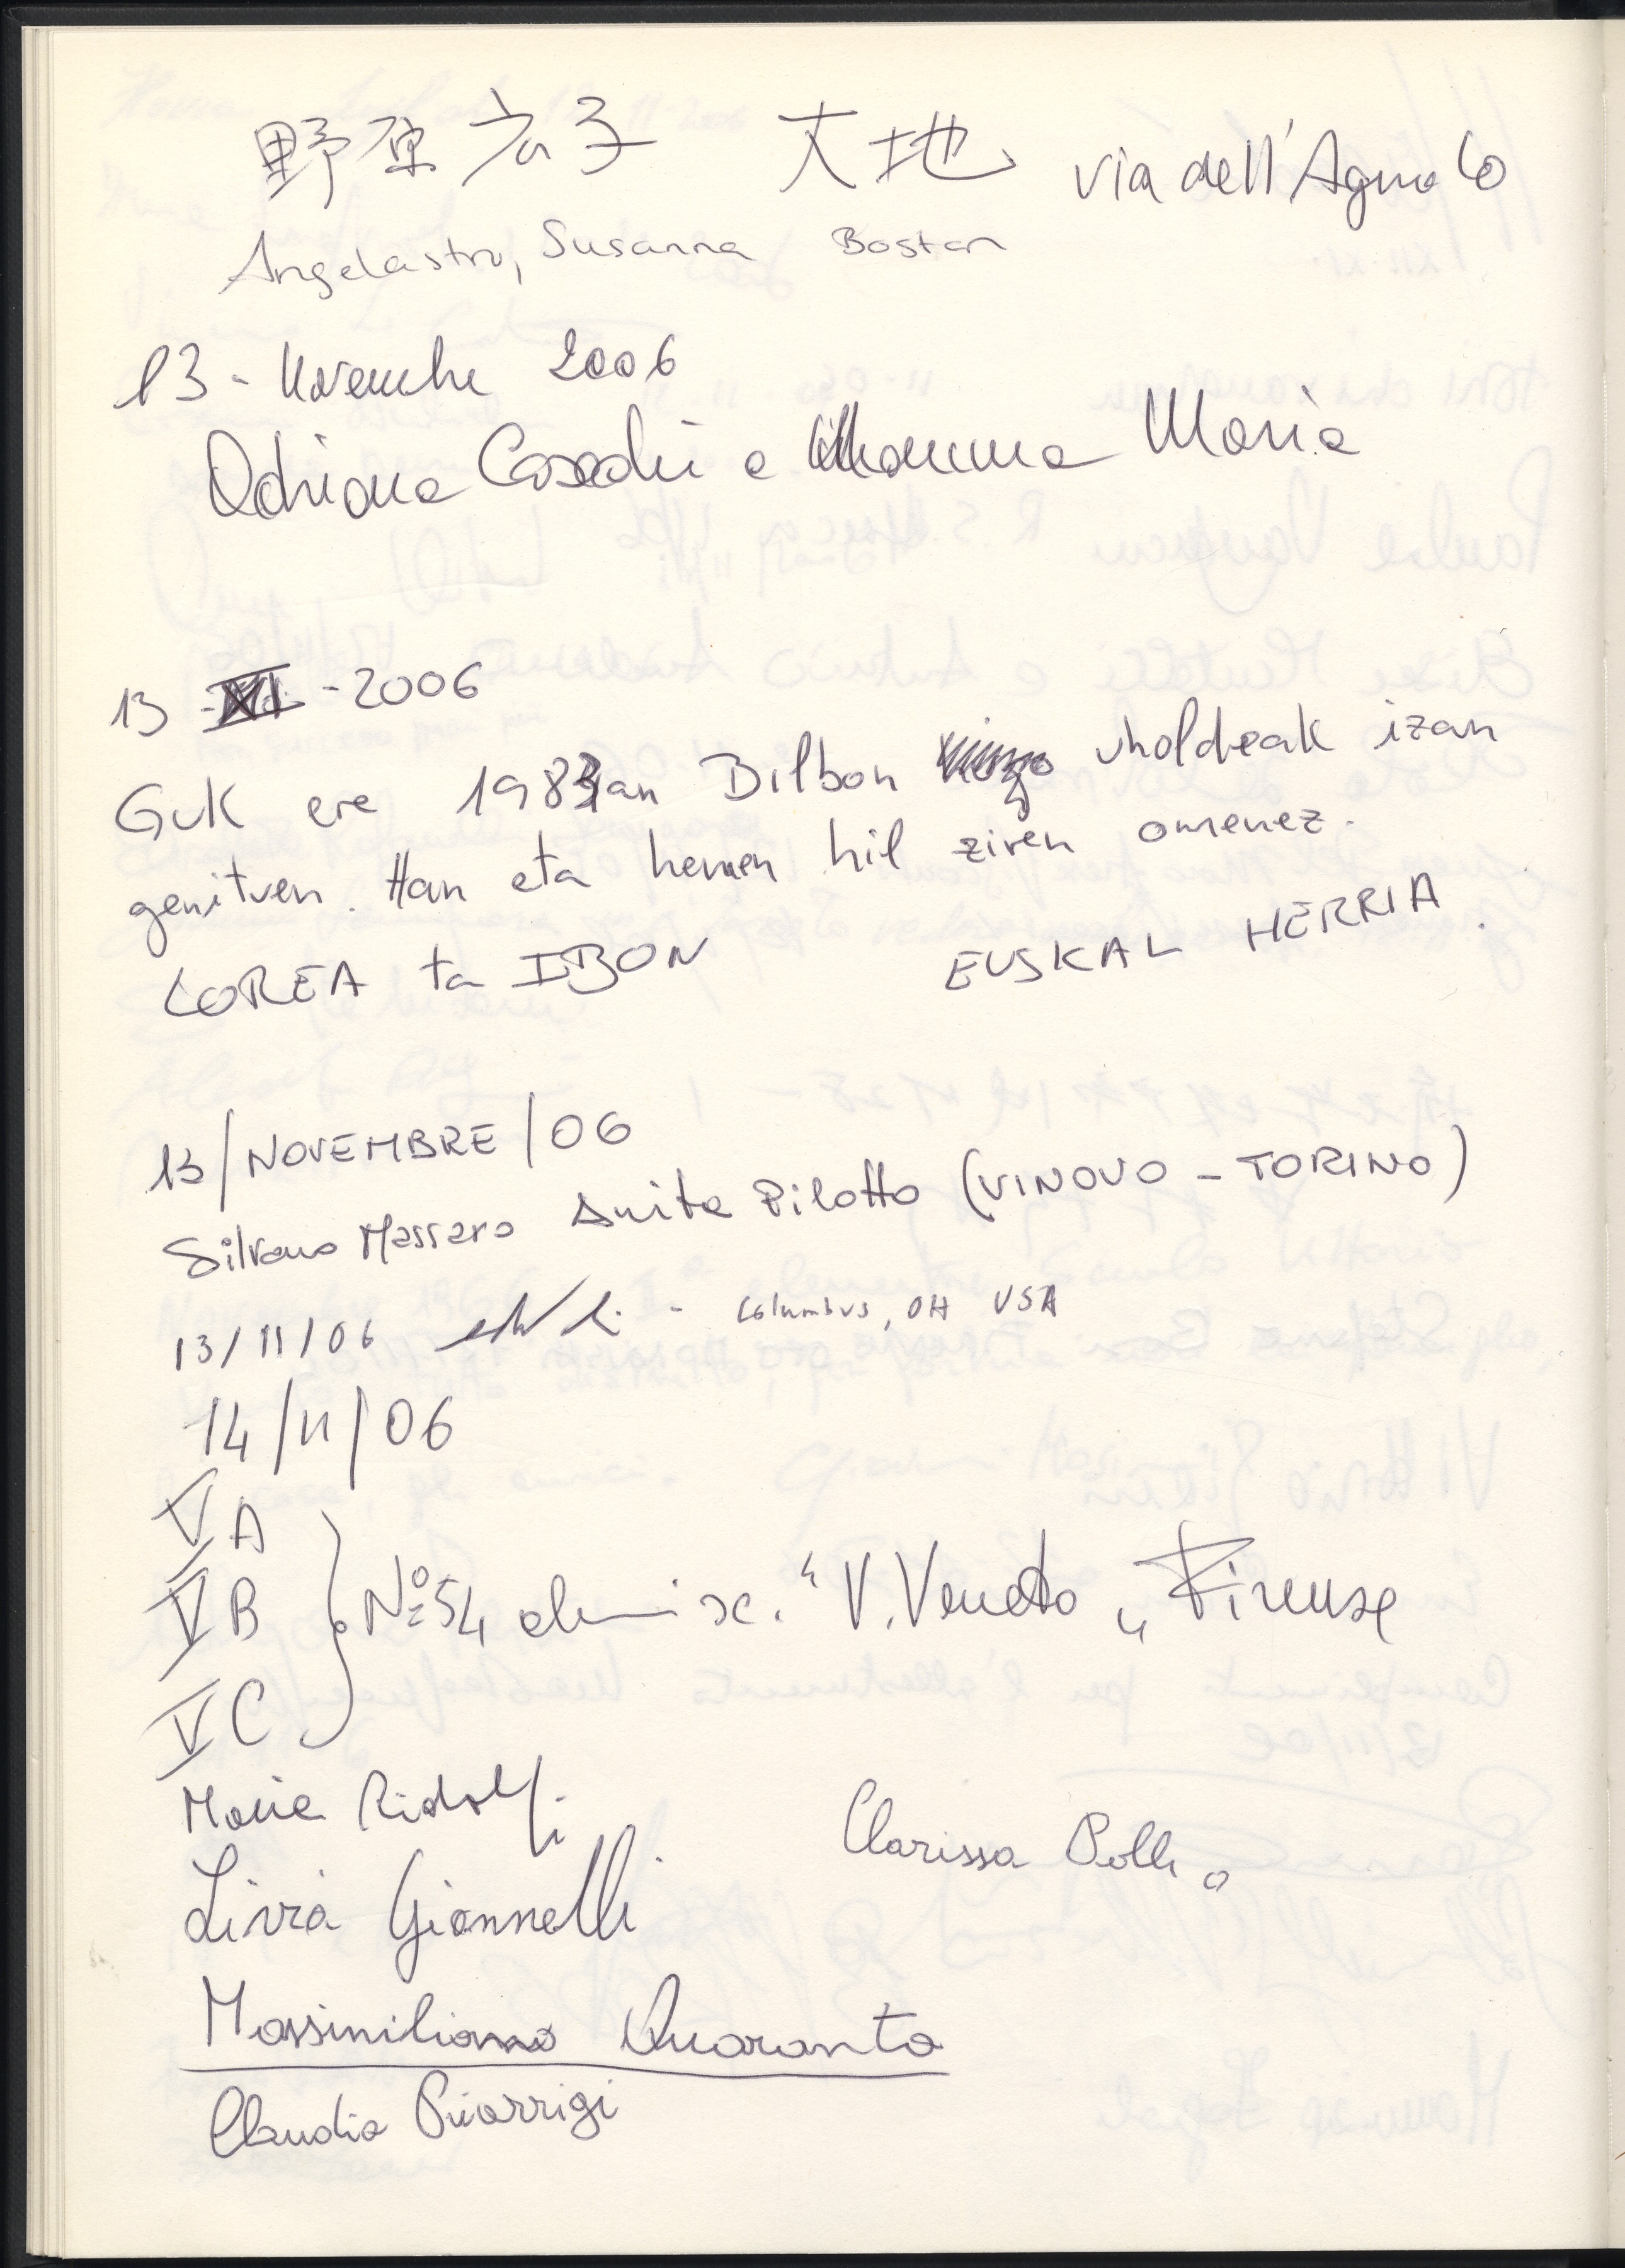 野原宏子 大地 via dell'Agnolo
Angelastro, Susanna Boston
13 - Novembre 2006
Adriana Casedei e Mamma Maria
13 - XI - 2006
Guk ere 1983an Bilbon uholdeak izan
genituen. Han eta hemen hil ziren omenez.
LOREA ta IBON EUSKAL HERRIA.
13/NOVEMBRE/06
Silvano Massaro Anita Pilotto (VINOVO - TORINO)
13/11/06 - Columbus, OH USA
14/11/06
V A
V B
V C
N° 54 alunni sc. "V. Veneto" Firenze
Maria Ridolfi
Clarissa Pollio
Livia Giannelli
Massimiliano Quaranta
Claudia